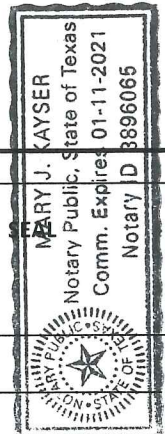 MARY J. KAYSER
Notary Public, State of Texas
Comm. Expires 01-11-2021
Notary ID 8896065
SEAL
NOTARY PUBLIC
STATE OF TEXAS